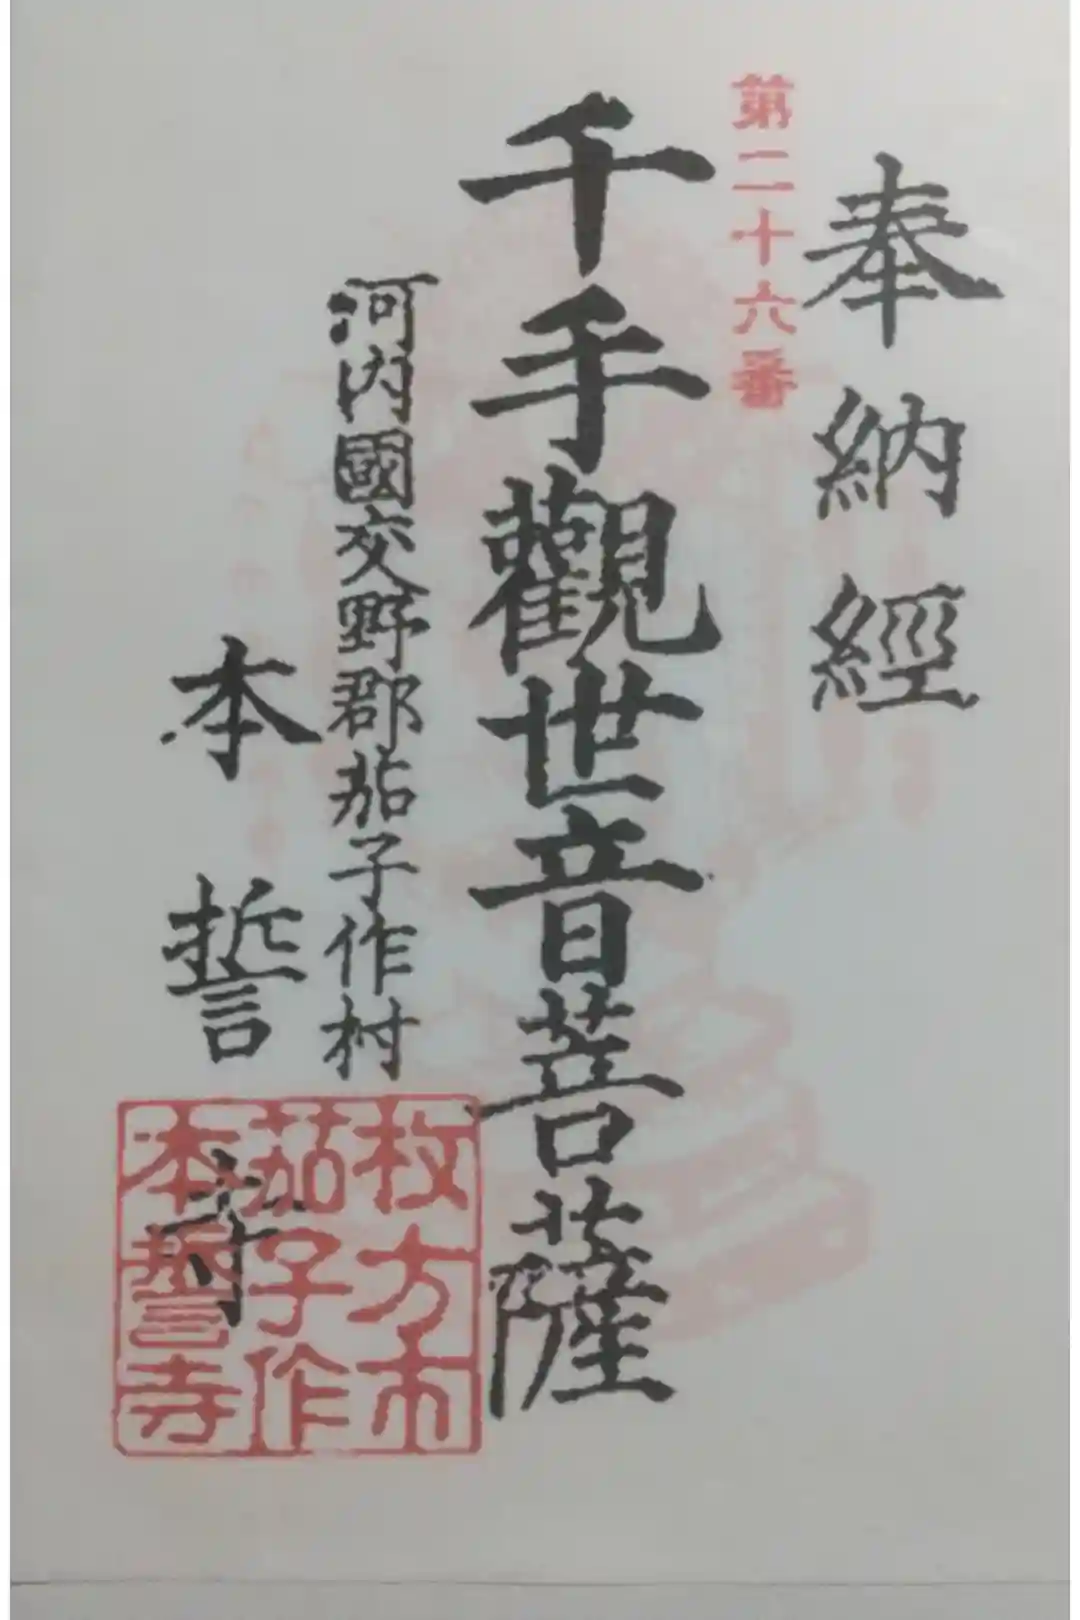 奉納經
第二十六番
千手觀世音菩薩
河内國交野郡茄子作村
本誓寺
枚方市
茄子作
本誓寺